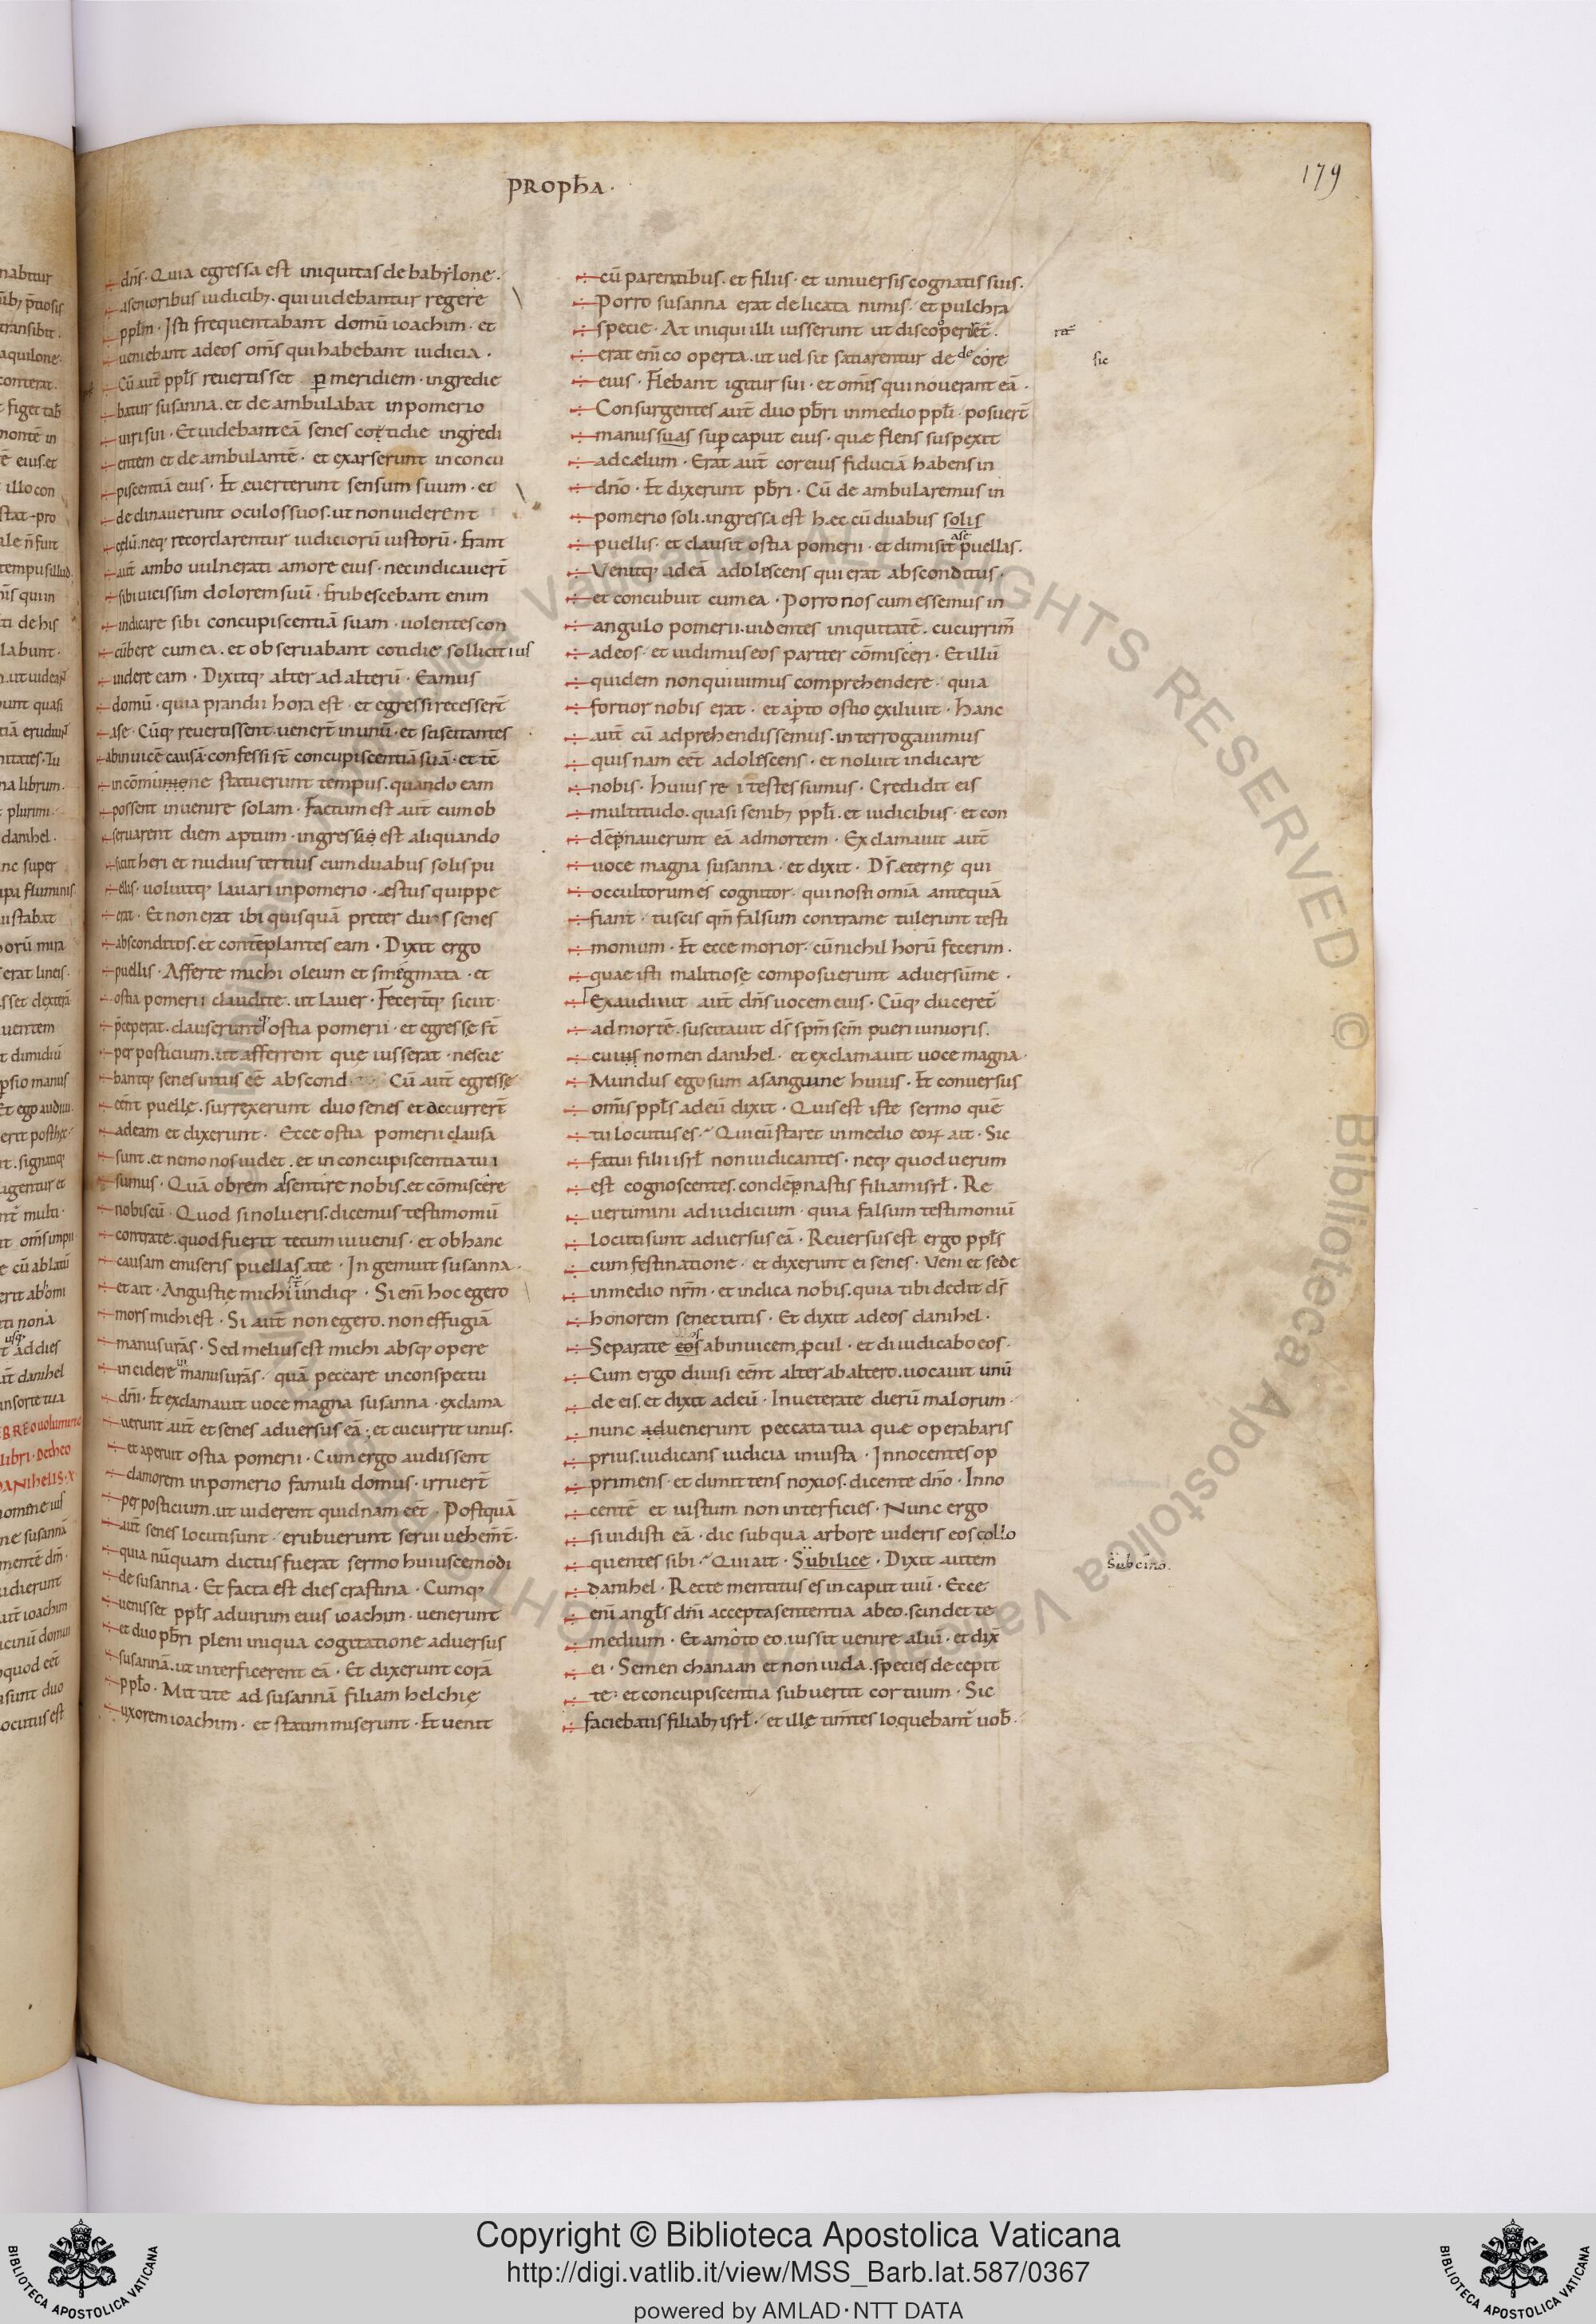 PROPħA·
179
dn̄s· Quia egressa est iniquitas de babẏlone·
a senioribus iudicibꝫ· qui uidebantur regere
ppłm· Isti frequentabant domū ioachim· et
ueniebant ad eos om̄s qui habebant iudicia·
Cū aut̄ ppłs reuertisset p̱ meridiem· ingredie
batur susanna· et deambulabat in pomerio
uiri sui· Et uidebant eā senes cottidie ingredi
entem et deambulantē· et exarserunt in concu
piscentiā eius· Et euerterunt sensum suum· et
declinauerunt oculos suos· ut non uiderent
cęlū· neqꝫ recordarentur iudiciorū iustorū· Erant
aut̄ ambo uulnerati amore eius· nec indicauer̄t
sibi uicissim dolorem suū· Erubescebant enim
indicare sibi concupiscentiā suam· uolentes con
cūbere cum ea· et obseruabant cotidie sollicitius
uidere eam· Dixitqꝫ alter ad alterū· Eamus
domū· quia prandii hora est· et egressi recesser̄t
a se· Cūqꝫ reuertissent· uener̄t in unū· et sciscitantes
ab inuicē causā· confessi st̄ concupiscentiā suā· et tē
in cōmunione statuerunt tempus· quando eam
possent inuenire solam· Factum est aut̄ cum ob
seruarent diem aptum· ingressus est aliquando
sicut heri et nudius tertius cum duabus solis pu
ellis· uoluitqꝫ lauari in pomerio· ęstus quippe
erat· Et non erat ibi quisquā preter duos senes
absconditos· et contēplantes eam· Dixit ergo
puellis· Afferte michi oleum et smegmata· et
ostia pomerii claudite· ut lauer· Fecer̄tqꝫ sicut
p̄ceperat· clauserunt qꝫ ostia pomerii· et egressę st̄
per posticium· ut afferrent que iusserat· nescie
bantqꝫ senes intus eē abscond Cū aut̄ egressę
eēnt puellę· surrexerunt duo senes et accurrer̄t
ad eam et dixerunt· Ecce ostia pomerii clausa
sunt· et nemo nos uidet· et in concupiscentia tui
sumus· Quā obrem assentire nobis· et cōmiscere
nobiscū· Quod si nolueris· dicemus testimoniū
contra te· quod fuerit tecum iuuenis· et ob hanc
causam emiseris puellas a te· Ingemuit susanna·
et ait· Angustię michi st̄ undiqꝫ· Si em̄ hoc egero
mors michi est· Si aut̄ non egero· non effugiā
manus ur̄as· Sed melius est michi absqꝫ opere
incidere in manus ur̄as· quā peccare in conspectu
dn̄i· Et exclamauit uoce magna susanna· exclama
uerunt aut̄ et senes aduersus eā· et cucurrit unus·
et aperuit ostia pomerii· Cum ergo audissent
clamorem in pomerio famuli domus· irruer̄t
per posticium· ut uiderent quidnam eēt· Postquā
aut̄ senes locuti sunt· erubuerunt serui uehem̄t·
quia nūquam dictus fuerat sermo huiuscemodi
de susanna· Et facta est dies crastina· Cumqꝫ
uenisset ppłs ad uirum eius ioachim· uenerunt
et duo pb̄ri pleni iniqua cogitatione aduersus
susannā· ut interficerent eā· Et dixerunt corā
ppło· Mittite ad susannā filiam helchię
uxorem ioachim· et statim miserunt· Et uenit
cū parentibus· et filiis· et uniuersis cognatis suis·
Porro susanna erat delicata nimis· et pulchra
specie· At iniqui illi iusserunt ut discoperiret̄·
erat em̄ cooperta· ut uel sic satiarentur de decore
sic
eius· Flebant igitur sui· et om̄s qui nouerant eā·
Consurgentes aut̄ duo pb̄ri in medio ppłi· posuer̄t
manus suas sup̱ caput eius· quæ flens suspexit
ad cælum· Erat aut̄ cor eius fiduciā habens in
dn̄o· Et dixerunt pb̄ri· Cū deambularemus in
pomerio soli· ingressa est hęc cū duabus solis
puellis· et clausit ostia pomerii· et dimisit a se puellas·
Venitqꝫ ad eā adolescens qui erat absconditus·
et concubuit cum ea· Porro nos cum essemus in
angulo pomerii· uidentes iniquitatē· cucurrim̄
ad eos· et uidimus eos pariter cōmisceri· Et illū
quidem non quiuimus comprehendere· quia
fortior nobis erat· et ap̱to ostio exiluit· Hanc
aut̄ cū adprehendissemus· interrogauimus
quisnam eēt adolescens· et noluit indicare
nobis· Huius rei testes sumus· Credidit eis
multitudo· quasi senibꝫ ppłi· et iudicibus· et con
dēpnauerunt eā ad mortem· Exclamauit aut̄
uoce magna susanna· et dixit· Ds̄ æternę qui
occultorum es cognitor· qui nosti omīa antequā
fiant· tu scis qm̄ falsum contra me tulerunt testi
monium· Et ecce morior· cū nichil horū fecerim·
quae isti malitiosę composuerunt aduersū me·
Exaudiuit aut̄ dn̄s uocem eius· Cūqꝫ duceret̄
ad mortē· suscitauit ds̄ sp̄m sc̄m pueri iunioris·
cuius nomen danihel· et exclamauit uoce magna·
Mundus ego sum a sanguine huius· Et conuersus
om̄is ppłs ad eū dixit· Quis est iste sermo quē
tu locutus es· Qui cū staret in medio eoꝝ ait· Sic
fatui filii isrł non iudicantes· neqꝫ quod uerum
est cognoscentes· condēpnastis filiam isrł· Re
uertimini ad iudicium· quia falsum testimoniū
locuti sunt aduersus eā· Reuersus est ergo ppłs
cum festinatione· et dixerunt ei senes· Veni et sede
in medio nr̄m· et indica nobis· quia tibi dedit ds̄
honorem senectutis· Et dixit ad eos danihel·
Separate eos ab inuicem p̱cul· et diiudicabo eos·
Cum ergo diuisi eēnt alter ab altero· uocauit unū
de eis· et dixit ad eū· Inueterate dierū malorum·
nunc aduenerunt peccata tua quæ operabaris
prius· iudicans iudicia iniusta· Innocentes op
primens· et dimittens noxios· dicente dn̄o· Inno
centē et iustum non interficies· Nunc ergo
si uidisti eā· dic sub qua arbore uideris eos collo
quentes sibi· Qui ait· Sub ilice· Dixit autem
Sub cino·
danihel· Recte mentitus es in caput tuū· Ecce
em̄ angłs dn̄i accepta sententia ab eo· scindet te
medium· Et amoto eo· iussit uenire aliū· et dix̄
ei· Semen chanaan et non iuda· species decepit
te· et concupiscentia subuertit cor tuum· Sic
faciebatis filiabꝫ isrł· et illę tim̄tes loquebant̄ uob̄·
Copyright © Biblioteca Apostolica Vaticana
http://digi.vatlib.it/view/MSS_Barb.lat.587/0367
powered by AMLAD·NTT DATA
BIBLIOTECA APOSTOLICA VATICANA
BIBLIOTECA APOSTOLICA VATICANA